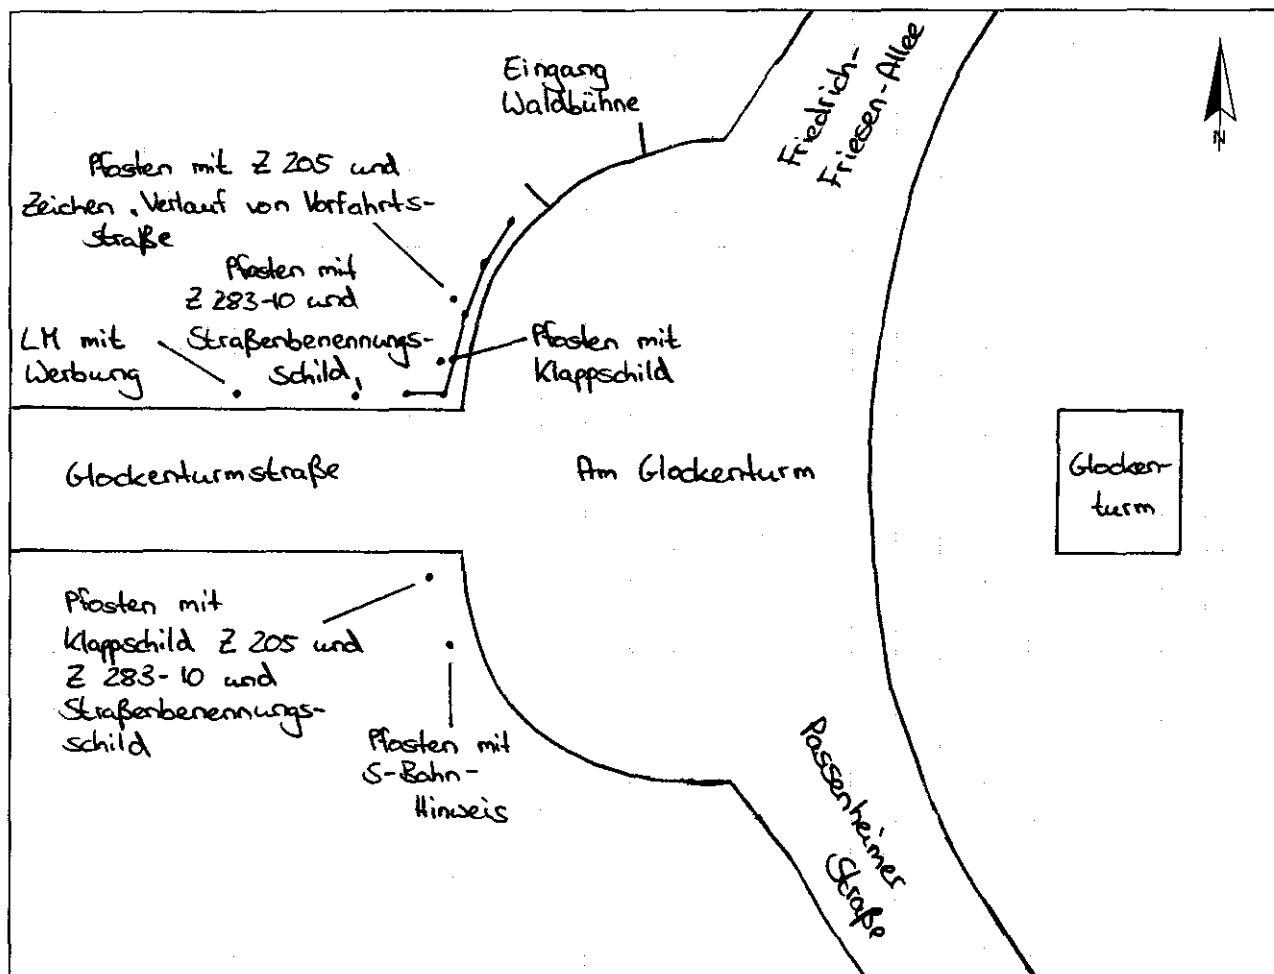 Eingang
Waldbühne
Friedrich-
Friesen-Allee
N
Pfosten mit Z 205 und
Zeichen „Verlauf von Vorfahrts-
straße
Pfosten mit
Z 283-10 und
Straßenbenennungs-
schild
LM mit
Werbung
Pfosten mit
Klappschild
Glockenturmstraße
Am Glockenturm
Glocken-
turm
Pfosten mit
Klappschild Z 205 und
Z 283-10 und
Straßenbenennungs-
schild
Pfosten mit
S-Bahn-
Hinweis
Passenheimer
Straße